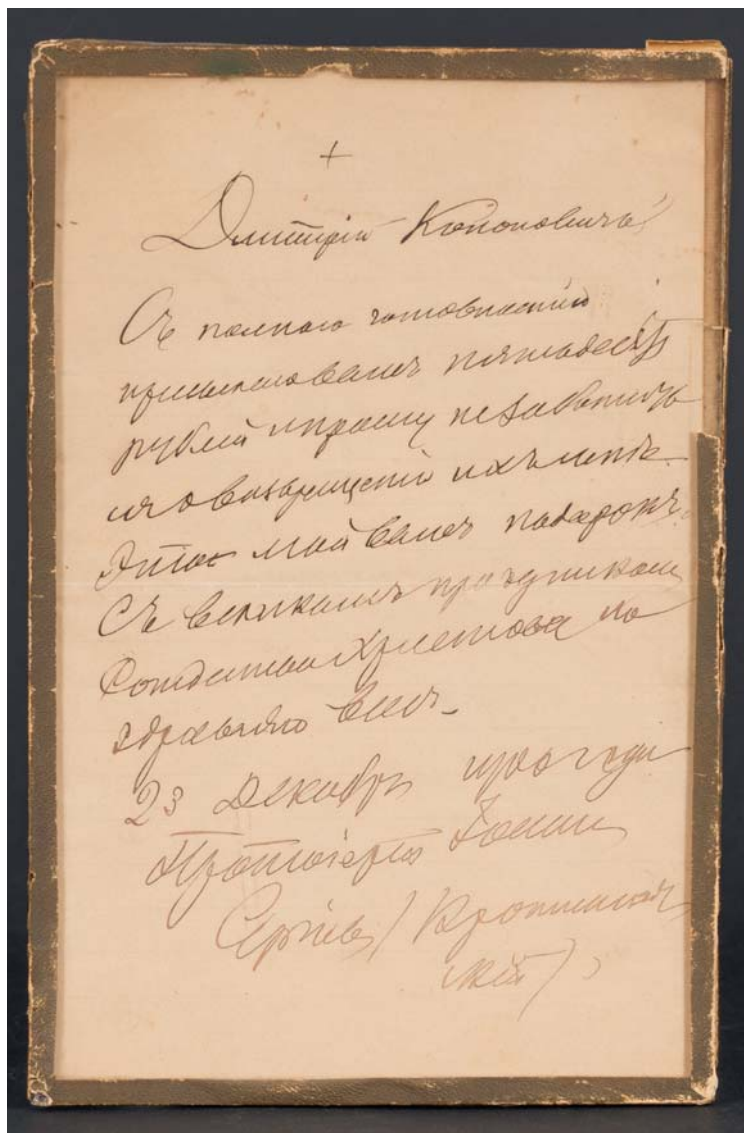 +
Дмитрій Кононовичъ!
Съ полною готовностію
присылаю вамъ пятьдесятъ
рублей и прошу не заботить
ся о возвращеніи ихъ мнѣ.
Это мой вамъ подарокъ.
Съ великимъ праздникомъ
Рождества Христова по
здравляю васъ.
23 Декабря года
Протоіерей Іоаннъ
Сергіевъ (Кронштадт
скій)